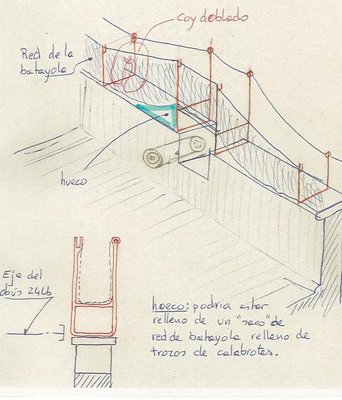 Coy doblado
Red de la
batayola
hueco
Eje del
obús 24Lb
hueco: podría estar
relleno de un "saco" de
red de batayola relleno de
trozos de calabrotes.